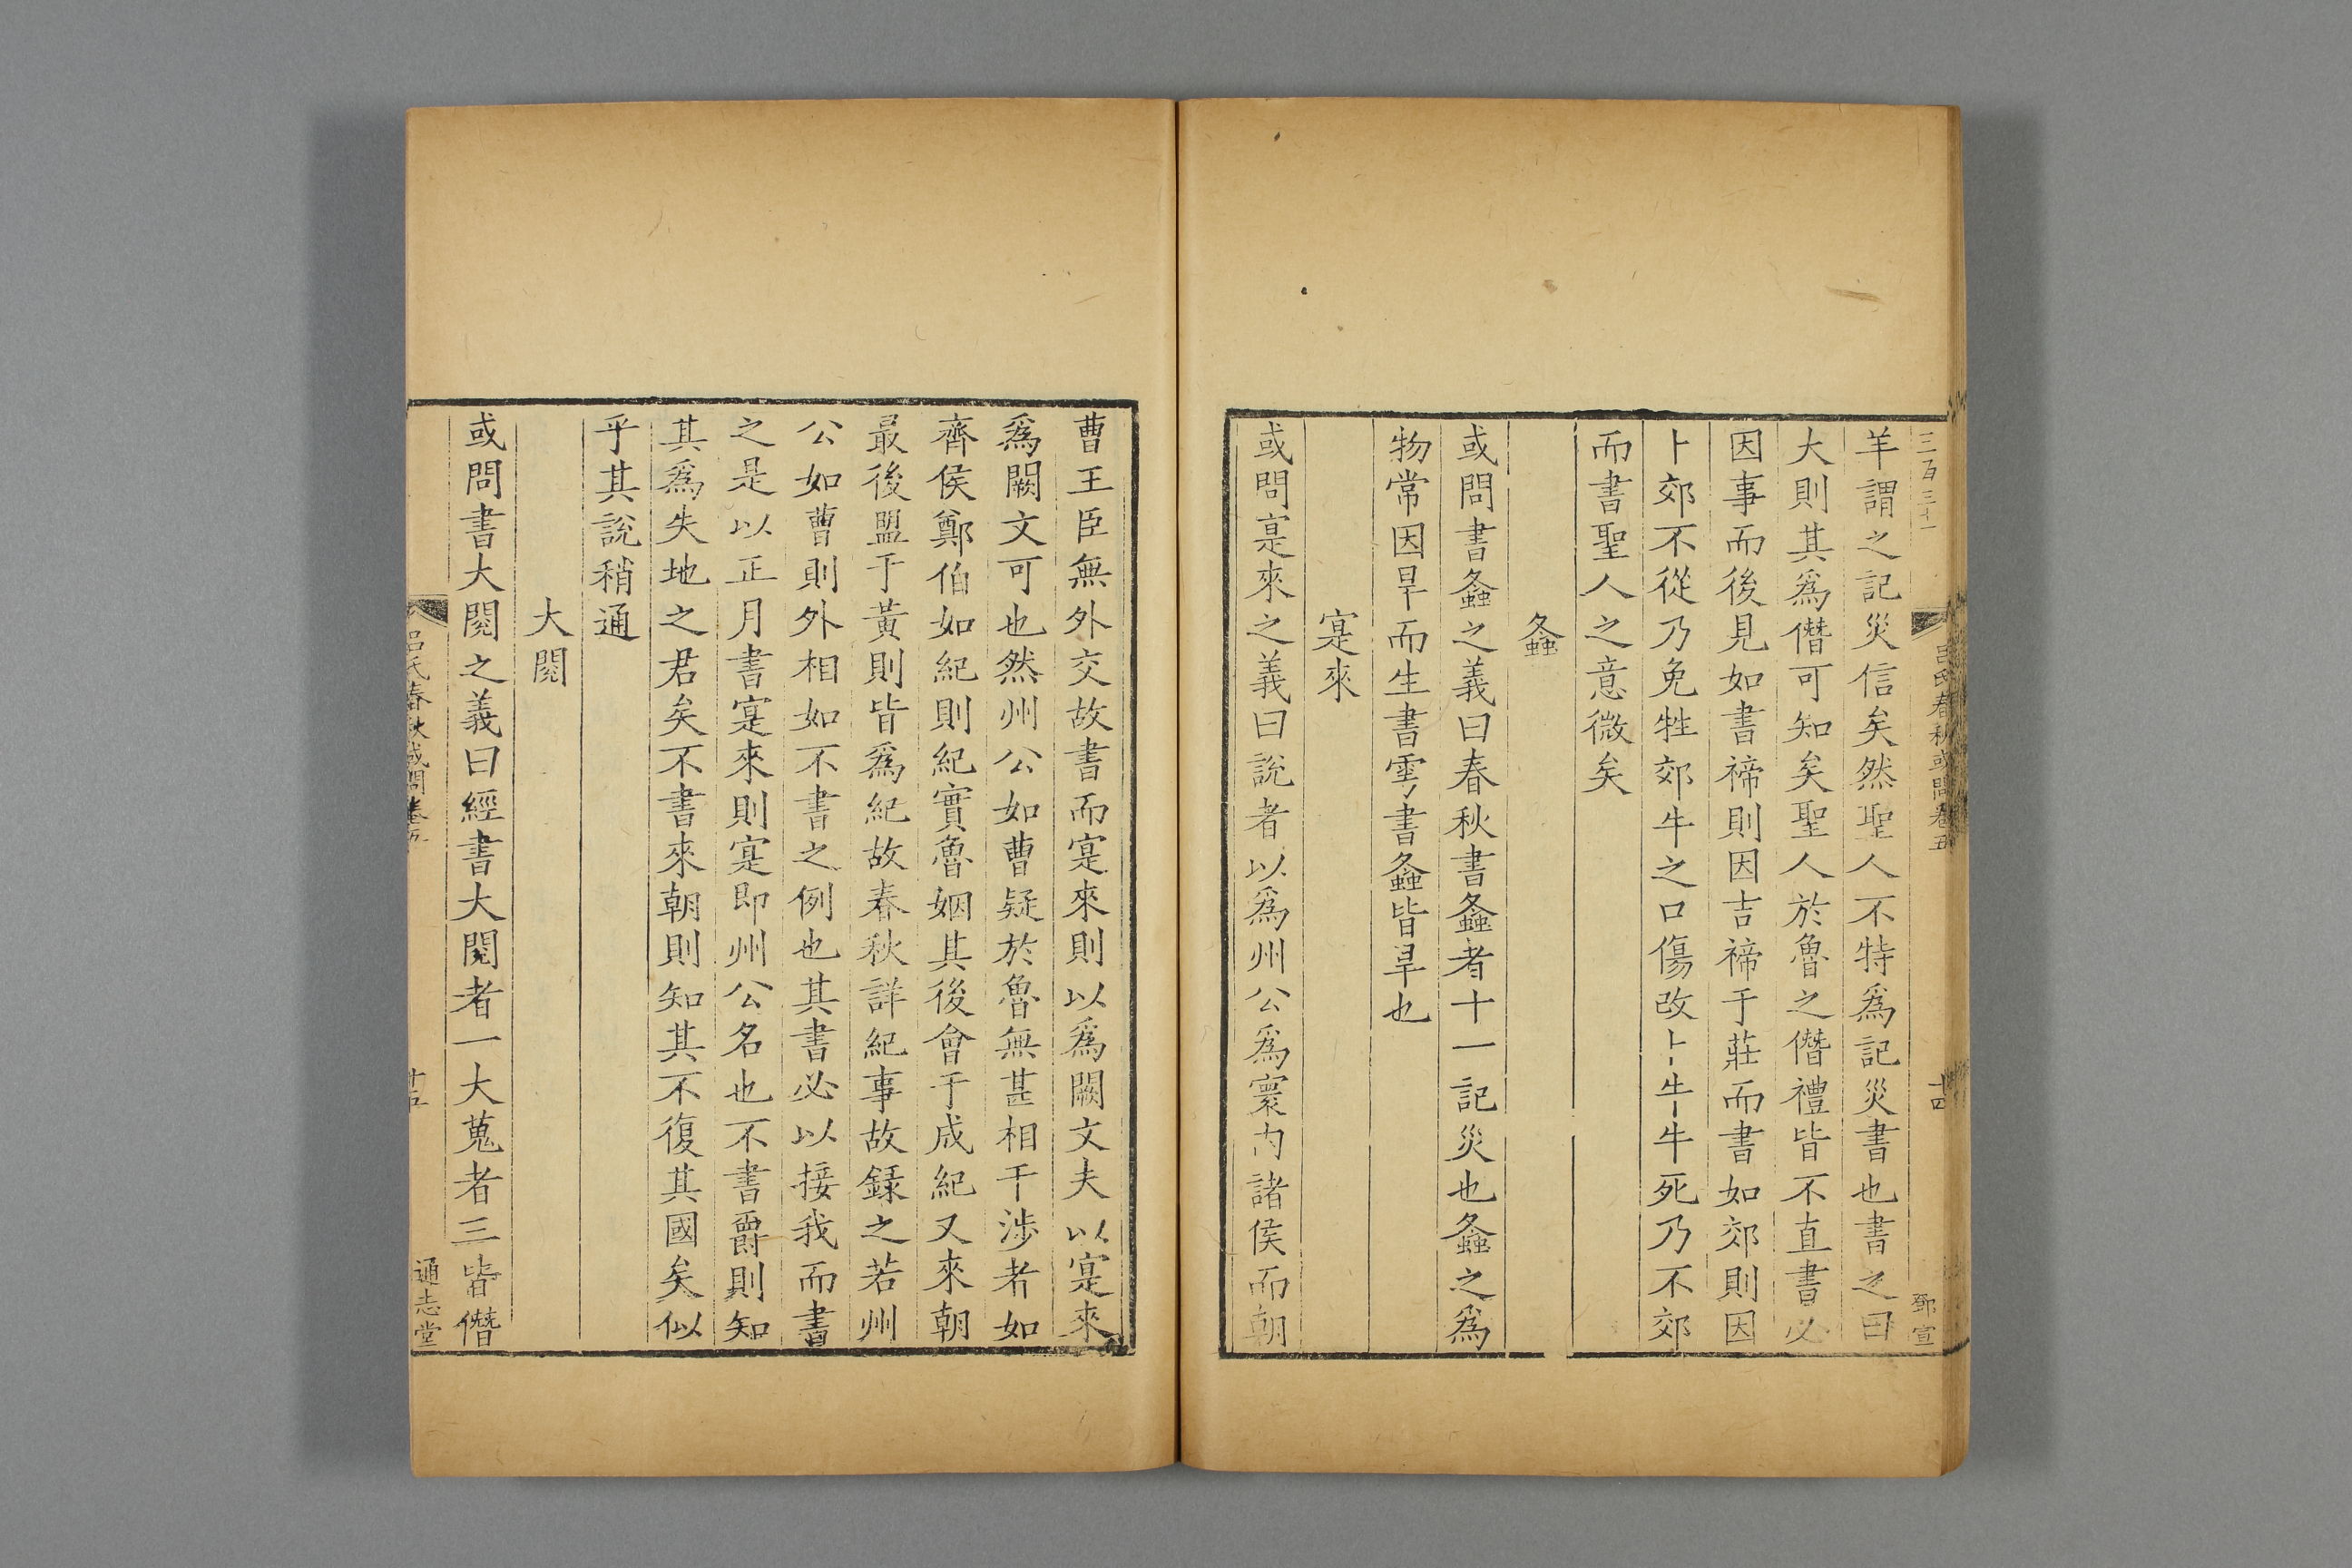 三百三十一
呂氏春秋或問卷五
十四
鄧宣
羊謂之記災信矣然聖人不特爲記災書也書之曰
大則其爲僭可知矣聖人於魯之僭禮皆不直書必
因事而後見如書禘則因吉禘于莊而書如郊則因
卜郊不從乃免牲郊牛之口傷改卜牛牛死乃不郊
而書聖人之意微矣
螽
或問書螽之義曰春秋書螽者十一記災也螽之爲
物常因旱而生書雩書螽皆旱也
寔來
或問寔來之義曰說者以爲州公爲寰內諸侯而朝
曹王臣無外交故書而寔來則以爲闕文夫以寔來
爲闕文可也然州公如曹疑於魯無甚相干涉者如
齊侯鄭伯如紀則紀實魯姻其後會于成紀又來朝
最後盟于黃則皆爲紀故春秋詳紀事故錄之若州
公如曹則外相如不書之例也其書必以接我而書
之是以正月書寔來則寔即州公名也不書爵則知
其爲失地之君矣不書來朝則知其不復其國矣似
乎其說稍通
大閱
或問書大閱之義曰經書大閱者一大蒐者三皆僭
呂氏春秋或問卷五
十五
通志堂